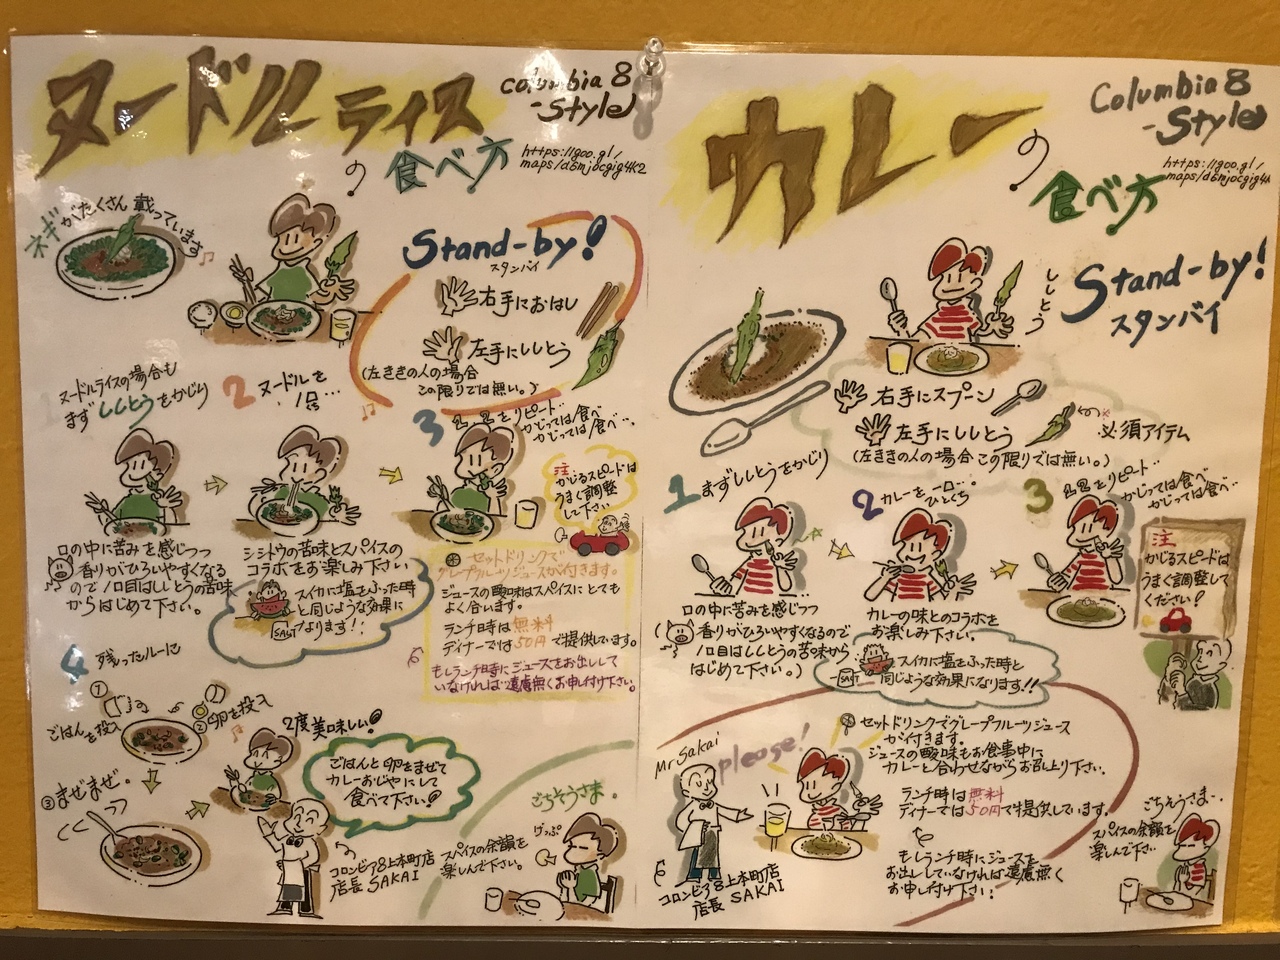 ヌードルライス
の
食べ方
Columbia 8
-Style
https://goo.gl/
maps/d6mjocgig4k2
ネギがたくさん載っています
Stand-by!
スタンバイ
右手におはし
左手にししとう
(左ききの人の場合
この限りでは無い。)
1
ヌードルライスの場合も
まずししとうをかじり
2
ヌードルを
一口…
3
2をリピート…
かじっては食べ
かじっては食べ…
注
かじるスピードは
うまく調整
して下さい
口の中に苦みを感じつつ
香りがひろいやすくなる
ので1口目はししとうの苦味
からはじめて下さい。
シシトウの苦味とスパイスの
コラボをお楽しみ下さい
スイカに塩をふった時
と同じような効果に
なります!!
SALT
セットドリンクで
グレープフルーツジュースが付きます。
ジュースの酸味はスパイスにとても
よく合います。
ランチ時は無料
ディナーでは50円で提供しています。
もしランチ時にジュースをお出しして
いなければ遠慮無くお申し付け下さい。
4
残ったルーに
①
ごはんを投入
②卵を投入
③まぜまぜ。
2度美味しい!
ごはんと卵をまぜて
カレーおじやにして
食べて下さい!
コロンビア8上本町店
店長 SAKAI
スパイスの余韻を
楽しんで下さい。
ごちそうさま.
げっぷ
カレー
の
食べ方
Columbia 8
-Style
https://goo.gl/
maps/d6mjocgig4k
Stand-by!
スタンバイ
ししとう
右手にスプーン
左手にししとう
必須アイテム
(左ききの人の場合この限りでは無い。)
1
まずししとうをかじり
2
カレーを一口…。
ひとくち
3
2をリピート…
かじっては食べ
かじっては食べ…
注
かじるスピードは
うまく調整して
ください!
口の中に苦みを感じつつ
香りがひろいやすくなるので
1口目はししとうの苦味から
はじめて下さい。)
カレーの味とのコラボを
お楽しみ下さい。
スイカに塩をふった時と
同じような効果になります!!
SALT
Mr Sakai
please!
セットドリンクでグレープフルーツジュース
が付きます。
ジュースの酸味もお食事中に
カレーと合わせながらお召し上り下さい。
ランチ時は無料
ディナーでは50円で提供しています。
もしランチ時にジュースを
お出ししていなければ遠慮無く
お申し付け下さい!
コロンビア8上本町店
店長 SAKAI
ごちそうさま…
スパイスの余韻を
楽しんで下さい